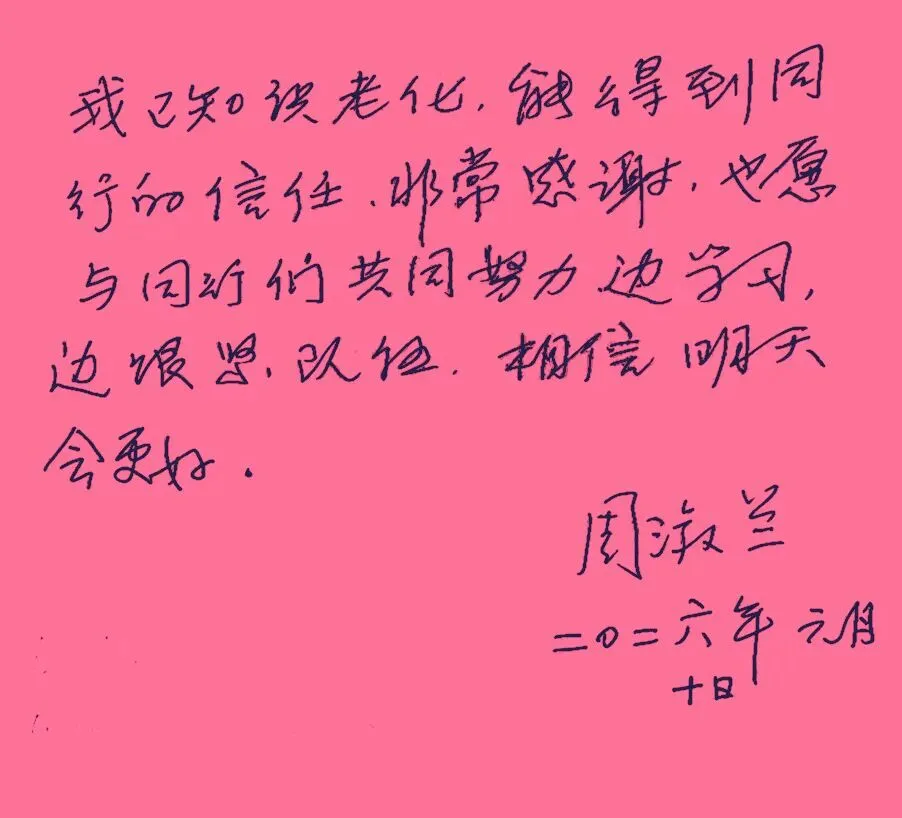 我已知识老化.能得到同
行的信任.非常感谢.也愿
与同行们共同努力边学习,
边跟紧.队伍.相信明天
会更好.
周淑兰
二〇二六年元月
十日